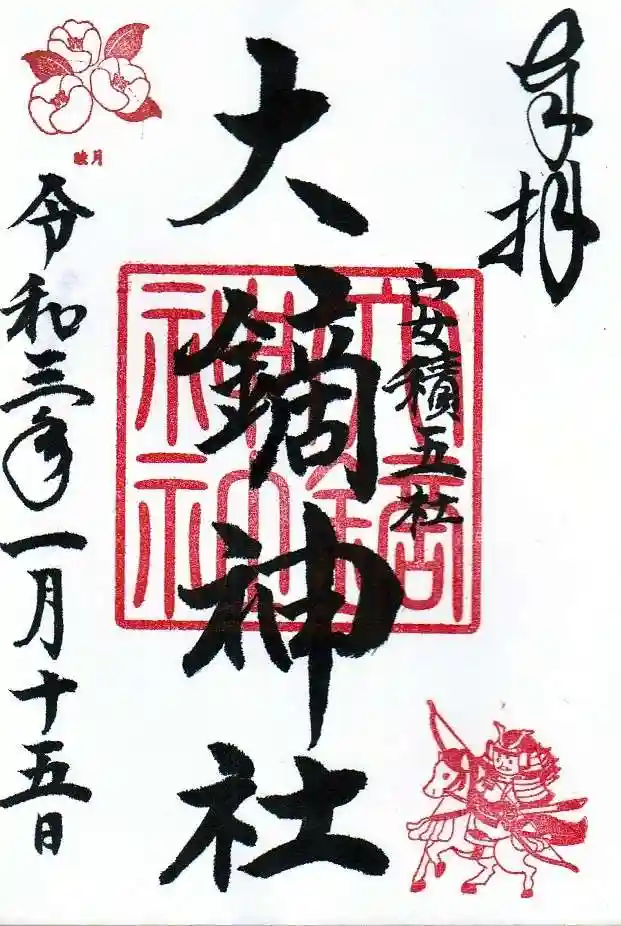 奉拝
安積五社
大鏑神社
令和三年一月十五日
大鏑神社